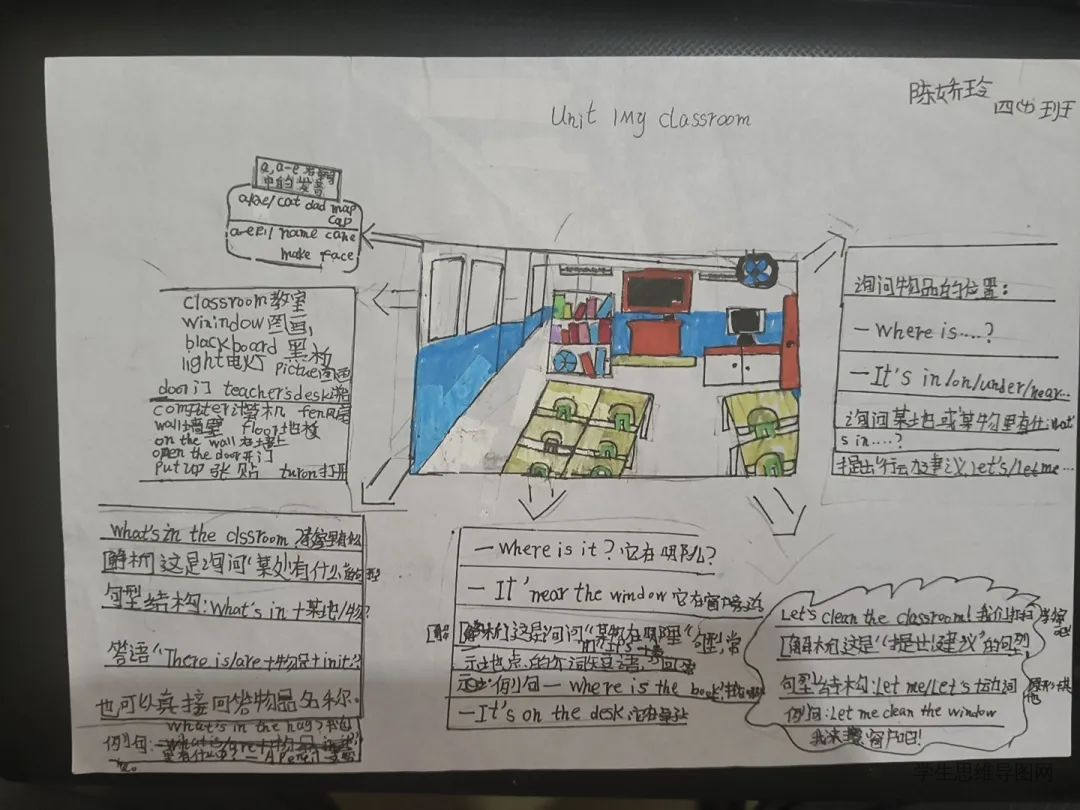 陈娇玲
四(4)班
Unit 1My classroom
a,a-e
中的发音
cat dad map
cap
name cake
make face
classroom教室
winindow图画,
blackboard 黑板
light电灯 pictue图画
door门 teachersdesk
computer计算机 fen风扇
wall墙壁 floor地板
on the wall 在墙上
open the door开门
put up 张贴 turon打开
询问物品的位置:
—Where is....?
—It's in/on/under/near...
询问某地或某物里有什 What'
s in....?
提出行动建议Let's/Let me...
What's in the clssroom
[解析]这是询问"某处有什么
句型结构:What's in +某地/物?
答语"There is/are+物品+init."
也可以直接回答物品名称。
What's in the
例句:
A Pencil
—Where is it? 它在哪?
—It 'near the window 它在窗
[解析]这是询问"某物在哪里"句型,常
"It's +
示地点的
例句—Where is the book?
—It's on the desk
Let's clean the classroom! 我们打扫
[解析]这是"提出建议"的句型
句型结构:Let me/Let's+动词
例句:Let me clean the window
我来 窗户吧!
学生思维导图网